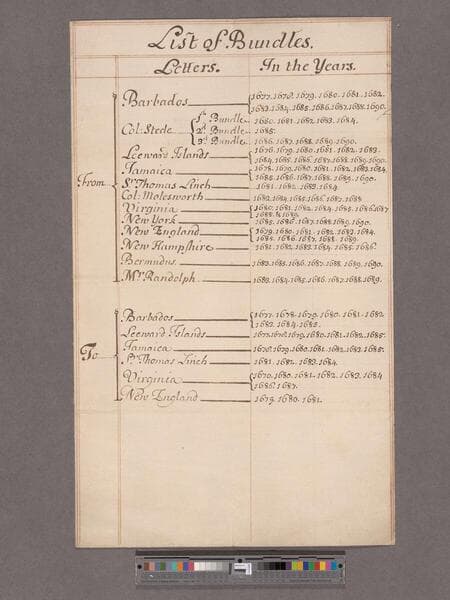 List of Bundles.
Letters. In the Years.
From
Barbados 1677. 1678. 1679. 1680. 1681. 1682.
1683. 1684. 1685. 1686. 1687. 1688. 1690.
Col: Stede 1st Bundle 1680. 1681. 1682. 1683. 1684.
2d Bundle 1685.
3d Bundle 1686. 1687. 1688. 1689. 1690.
Leeward Islands 1678. 1679. 1680. 1681. 1682. 1683.
1684. 1685. 1686. 1687. 1688. 1689. 1690.
Jamaica 1678. 1679. 1680. 1681. 1682. 1683. 1684
1685. 1686. 1687. 1688. 1689. 1690.
Sr. Thomas Linch 1681. 1682. 1683. 1684.
Col: Molesworth 1683. 1684. 1685. 1686. 1687. 1688
Virginia 1680. 1681. 1682. 1684. 1685. 1686. 1687
1688. & 1689.
New York 1685. 1686. 1687. 1688. 1689. 1690.
New England 1679. 1680. 1681. 1682. 1683. 1684.
1685. 1686. 1687. 1688. 1689.
New Hampshire 1681. 1682. 1683. 1684. 1685. 1686.
Bermudas 1683. 1685. 1686. 1687. 1688. 1689. 1690.
Mr. Randolph 1683. 1684. 1685. 1686. 1687. 1688. 1689.
To
Barbados 1677. 1678. 1679. 1680. 1681. 1682
1683. 1684. 1685.
Leeward Islands 1677. 1678. 1679. 1680. 1681. 1682. 1685.
Jamaica 1678. 1679. 1680. 1681. 1682. 1683. 1685.
Sr. Thomas Linch 1681. 1682. 1683. 1684.
Virginia 1679. 1680. 1681. 1682. 1683. 1684
1686. 1687.
New England 1679. 1680. 1681.